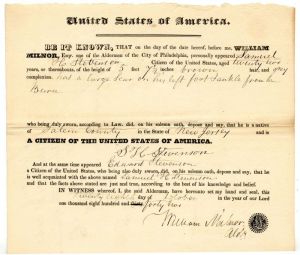 United States of America.
BE IT KNOWN, THAT on the day of the date hereof, before me WILLIAM
MILNOR, Esq. one of the Aldermen of the City of Philadelphia, personally appeared Samuel
H. Stevenson a Citizen of the United States, aged twenty two
years, or thereabouts, of the height of 5 feet 7½ inches brown hair, and grey
has a large scar on his left foot & ankle from a
Burn
who being duly sworn, according to Law, did, on his solemn oath, depose and say, that he is a native
of Salem County in the State of New Jersey and is
A CITIZEN OF THE UNITED STATES OF AMERICA.
S. H. Stevenson
And at the same time appeared Edward Stevenson
a Citizen of the United States, who being also duly sworn, did, on his solemn oath, depose and say, that he is
well acquainted with the above named Samuel H. Stevenson and that
the facts above stated are just and true, according to the best of his knowledge and belief.
IN WITNESS whereof, I, the said Alderman, have hereunto set my hand and seal, this
twenty eighth day of October in the year of our Lord
one thousand eight hundred and forty two
William Milnor
Ald.